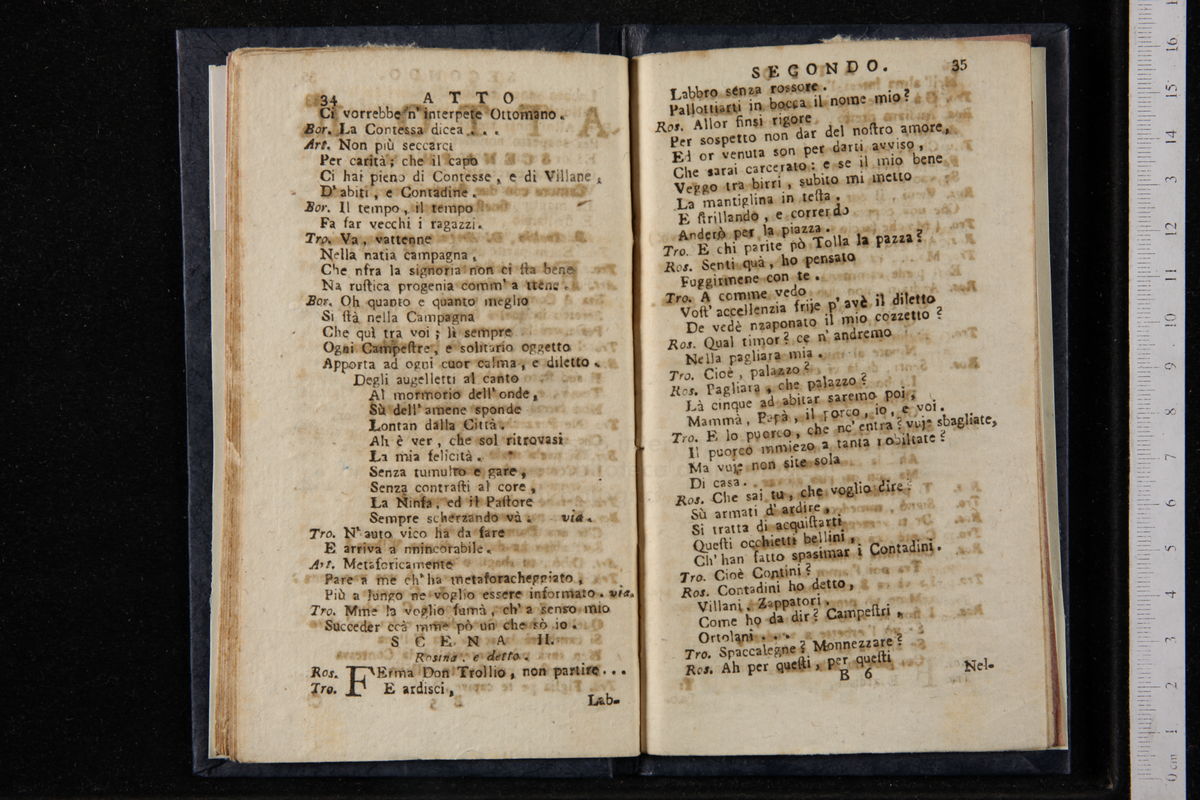 34 ATTO
Ci vorrebbe n' interpete Ottomano.
Bor. La Contessa dicea . . .
Art. Non più seccarci
Per carità; che il capo
Ci hai pieno di Contesse, e di Villane,
D' abiti, e Contadine.
Bor. Il tempo, il tempo
Fa far vecchi i ragazzi.
Tro. Va, vattenne
Nella natia campagna,
Che nfra la signoria non ci sta bene
Na rustica progenia comm' a ttene.
Bor. Oh quanto e quanto meglio
Si stà nella Campagna
Che quì tra voi; lì sempre
Ogni Campestre, e solitario oggetto
Apporta ad ogni cuor calma, e diletto.
Degli augelletti al canto
Al mormorio dell' onde,
Sù dell' amene sponde
Lontan dalla Città.
Ah è ver, che sol ritrovasi
La mia felicità.
Senza tumulto e gare,
Senza contrasti al core,
La Ninfa, ed il Pastore
Sempre scherzando và. via.
Tro. N' auto vico ha da fare
E arriva a nnincorabile.
Art. Metaforicamente
Pare a me ch' ha metaforacheggiato,
Più a lungo ne voglio essere informato. via.
Tro. Mme la voglio fumà, ch' a senso mio
Succeder ccà mme pò un che sò io.
SCENA II.
Rosina, e detto.
Ros. FErma Don Trollio, non partire...
Tro. E ardisci,
Lab-
SECONDO. 35
Labbro senza rossore.
Pallottiarti in bocca il nome mio?
Ros. Allor finsi rigore
Per sospetto non dar del nostro amore,
Ed or venuta son per darti avviso,
Che sarai carcerato: e se il mio bene
Veggo tra birri, subito mi metto
La mantiglina in testa.
E strillando, e correrdo
Anderò per la piazza.
Tro. E chi parite pò Tolla la pazza?
Ros. Senti quà, ho pensato
Fuggirmene con te.
Tro. A comme vedo
Vost' accellenzia frije p' avè il diletto
De vedè nzaponato il mio cozzetto?
Ros. Qual timor? ce n' andremo
Nella pagliara mia.
Tro. Cioè, palazzo?
Ros. Pagliara, che palazzo?
Là cinque ad abitar saremo poi,
Mammà, Papà, il porco, io, e voi.
Tro. E lo puorco, che nc' entra? vuje sbagliate,
Il puorco mmiezo a tanta nobiltate?
Ma vuje non site sola
Di casa.
Ros. Che sai tu, che voglio dire?
Sù armati d' ardire,
Si tratta di acquistarti
Questi occhietti bellini,
Ch' han fatto spasimar i Contadini.
Tro. Cioè Contini?
Ros. Contadini ho detto,
Villani, Zappatori,
Come ho da dir? Campestri,
Ortolani . . .
Tro. Spaccalegne? Monnezzare?
Ros. Ah per questi, per questi
B 6 Nel-